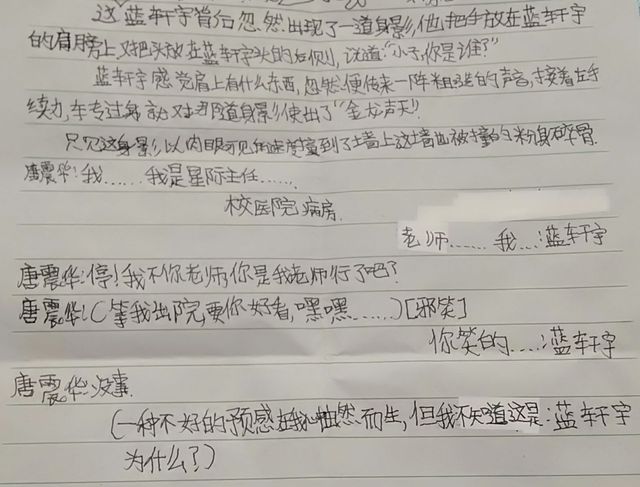 这蓝轩宇背后忽然出现了一道身影,他把手放在蓝轩宇
的肩膀上,又把头放在蓝轩宇头的右侧,说道:“小子,你是谁?”
蓝轩宇感觉肩上有什么东西,忽然便传来一阵粗犷的声音,接着左手
续力,车专过身就对那道身影使出了“金龙声天”!
只见这身影以肉眼可见的速度撞到了墙上这墙也被撞的粉身碎骨.
唐震华:我……我是星际主任……
校医院病房.
老师……我…:蓝轩宇
唐震华:停!我不你老师,你是我老师行了吧?
唐震华:(等我出院,要你好看,嘿嘿……)[邪笑]
你笑的….:蓝轩宇
唐震华:没事.
(一种不好的预感在我心柚然而生,但我不知道这是:蓝轩宇
为什么?)